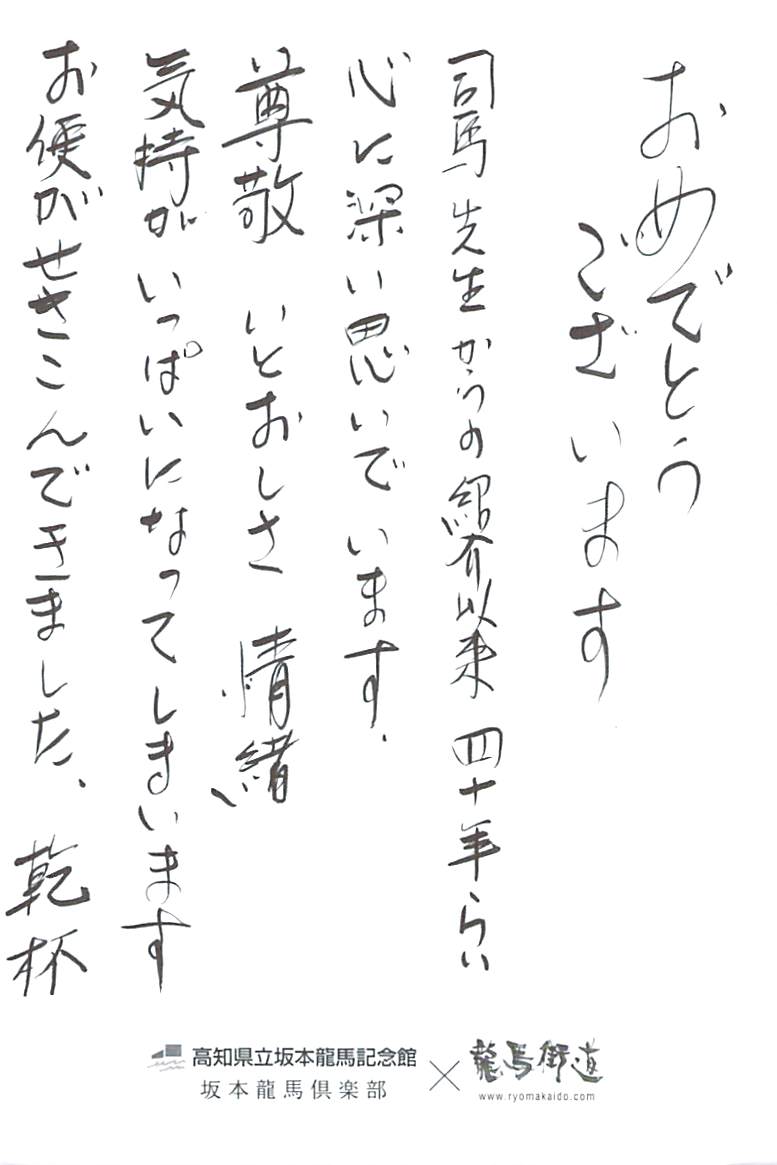 おめでとう
ございます
司馬先生からの紹介以来 四十年らい
心に深い思いでいます.
尊敬 いとおしさ 情緒
気持がいっぱいになってしまいます
お便がせきこんできました、乾杯
高知県立坂本龍馬記念館
坂本龍馬倶楽部
×
龍馬街道
www.ryomakaido.com